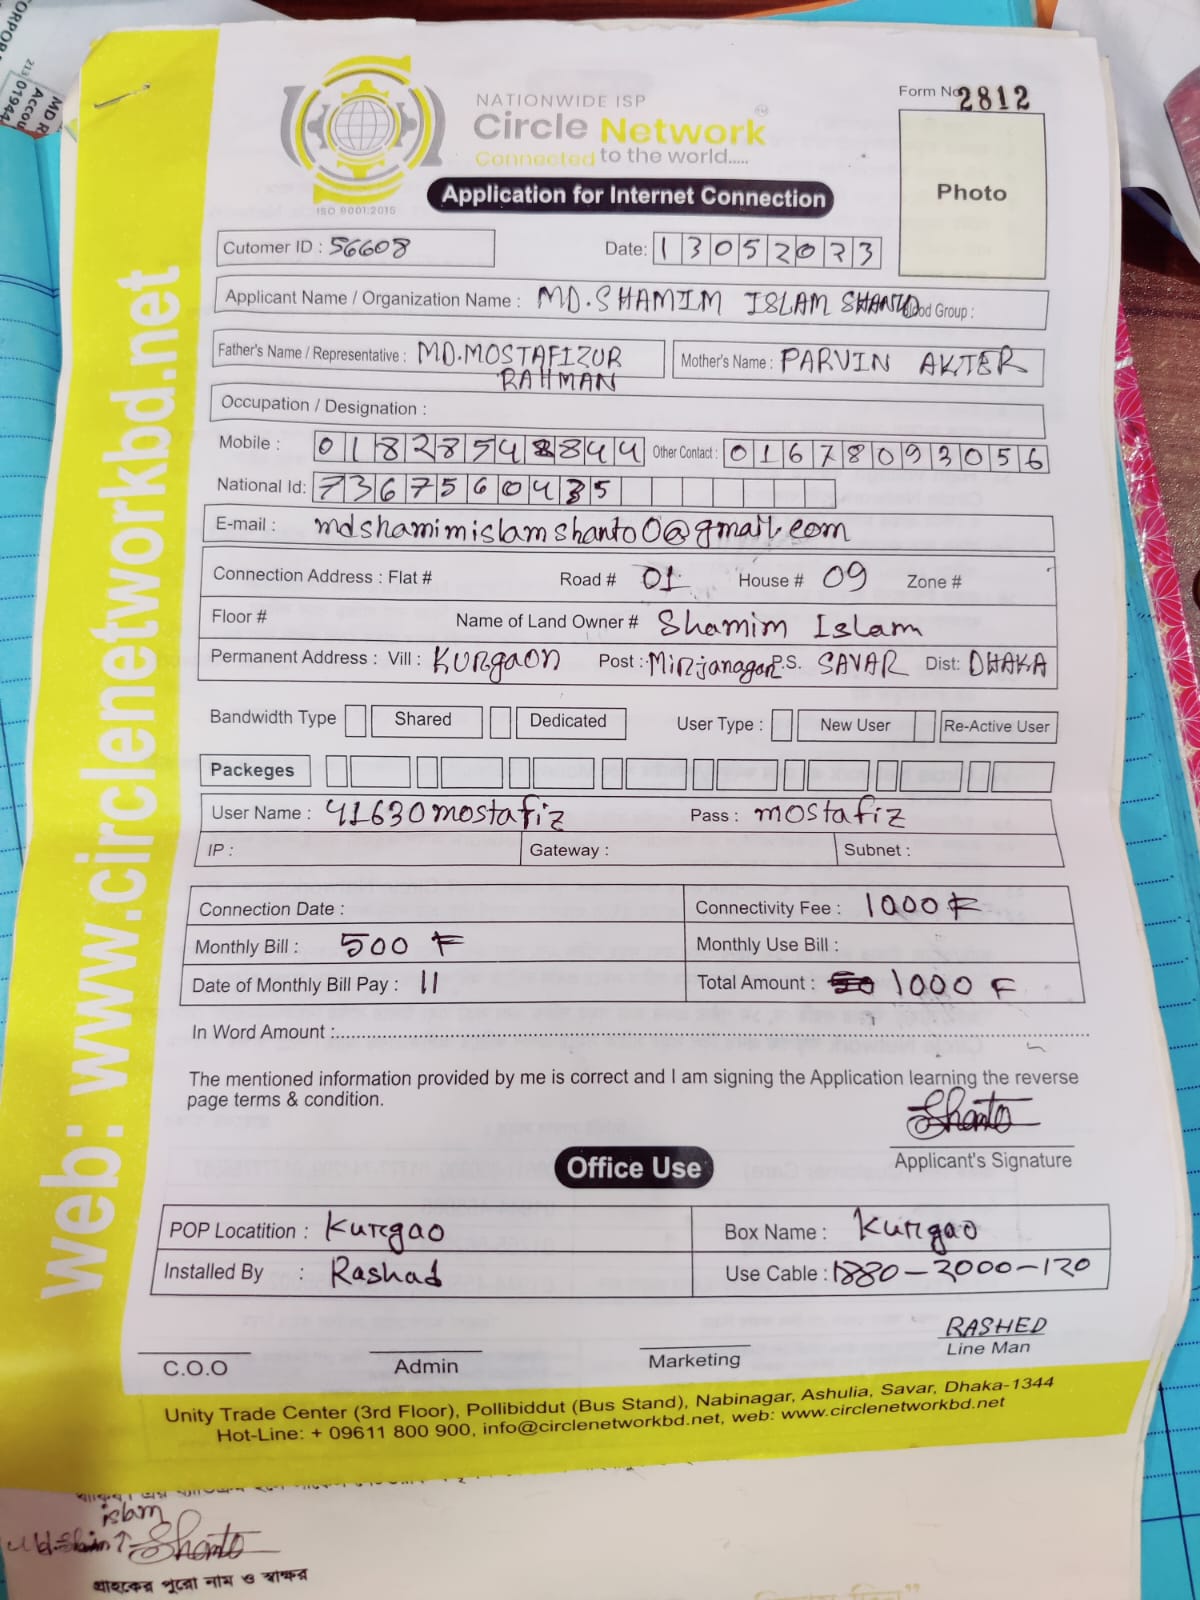 NATIONWIDE ISP
Circle Network
Connected to the world.....
ISO 9001:2015
Form No 2812
Photo
Application for Internet Connection
Cutomer ID : 56608 Date: 13052023
Applicant Name / Organization Name : MD.SHAMIM ISLAM SHANTO Blood Group :
Father's Name / Representative : MD.MOSTAFIZUR RAHMAN Mother's Name : PARVIN AKTER
Occupation / Designation :
Mobile : 01828548844 Other Contact : 01678093056
National Id: 7367560435
E-mail : mdshamimislamshanto0@gmail.com
Connection Address : Flat # Road # 01 House # 09 Zone #
Floor # Name of Land Owner # Shamim Islam
Permanent Address : Vill : KURgaon Post : Mirjanagar P.S. SAVAR Dist: DHAKA
Bandwidth Type Shared Dedicated User Type : New User Re-Active User
Packeges
User Name : 41630mostafiz Pass : mostafiz
IP : Gateway : Subnet :
Connection Date : Connectivity Fee : 1000 F
Monthly Bill : 500 F Monthly Use Bill :
Date of Monthly Bill Pay : 11 Total Amount : 1000 F
In Word Amount :
The mentioned information provided by me is correct and I am signing the Application learning the reverse
page terms & condition.
Shanto
Applicant's Signature
Office Use
POP Locatition : Kurgao Box Name : Kurgao
Installed By : Rashad Use Cable : 1880-2000-120
RASHED
C.O.O Admin Marketing Line Man
Unity Trade Center (3rd Floor), Pollibiddut (Bus Stand), Nabinagar, Ashulia, Savar, Dhaka-1344
Hot-Line: + 09611 800 900, info@circlenetworkbd.net, web: www.circlenetworkbd.net
web: www.circlenetworkbd.net
islam
Shanto
গ্রাহকের পুরো নাম ও স্বাক্ষর